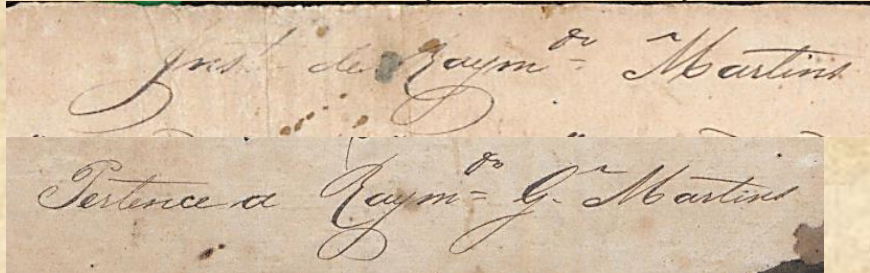 Inst. de Raym.do Martins
Pertence a Raym.do G. Martins